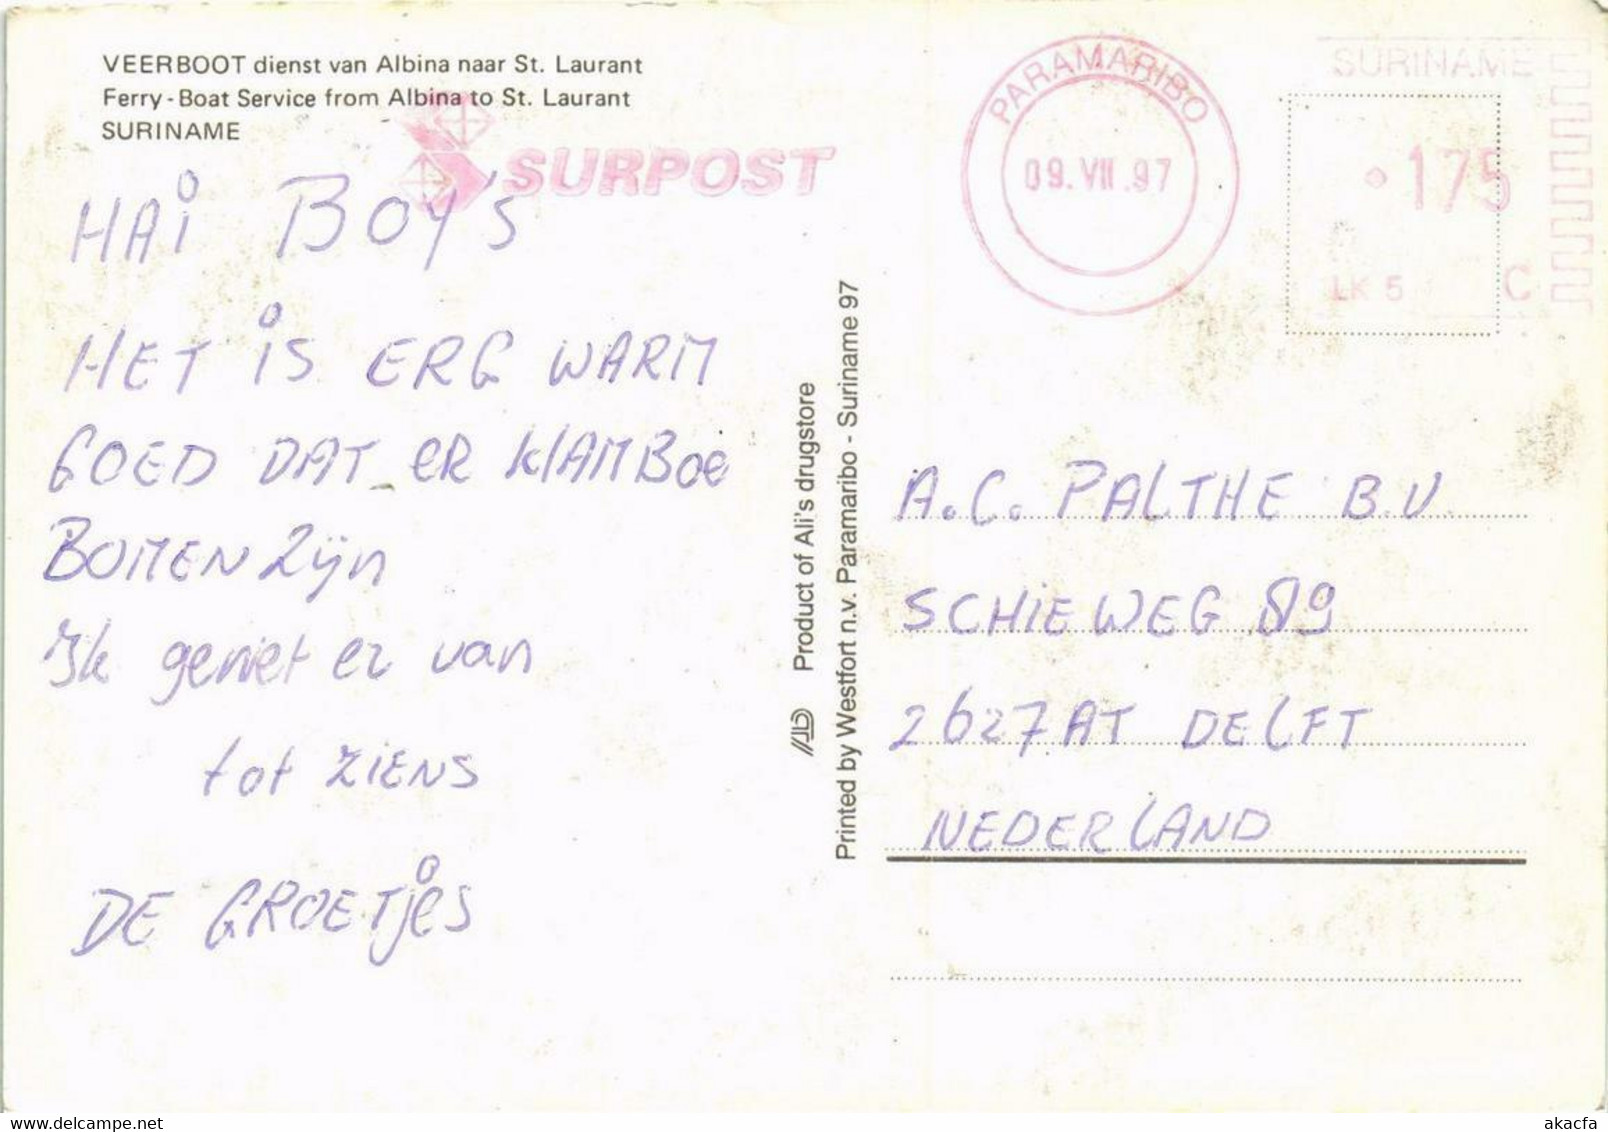 VEERBOOT dienst van Albina naar St. Laurant
Ferry-Boat Service from Albina to St. Laurant
SURINAME
SURPOST
PARAMARIBO
09.VII.97
SURINAME
175
LK 5 C
HAi BOY'S
HET iS ERG WARM
GOED DAT ER KlAMBOE
BOMEN Zijn
Ik geniet er van
tot ZIENS
DE GROETjes
Product of Ali's drugstore
Printed by Westfort n.v. Paramaribo - Suriname 97
A.C. PALTHE B.V
SCHIEWEG 89
2627AT DELFT
NEDERLAND
delcampe.net
akacfa